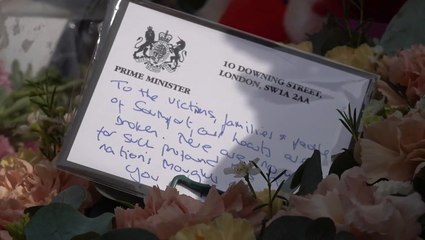 PRIME MINISTER
10 DOWNING STREET,
LONDON, SW1A 2AA
To the victims, families & people
of Southport, our hearts are
broken. There are no
for such profound
nation's thoughts
you